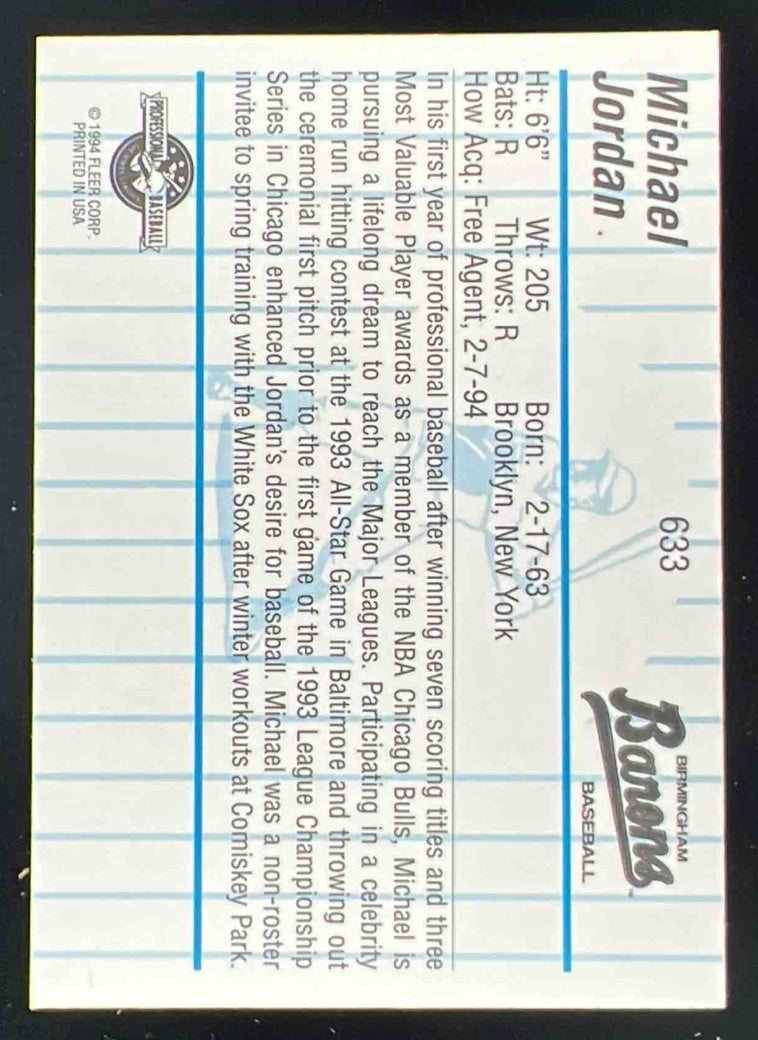 Michael
Jordan
633
BIRMINGHAM
Barons™
BASEBALL
Ht: 6'6" Wt: 205 Born: 2-17-63
Bats: R Throws: R Brooklyn, New York
How Acq: Free Agent, 2-7-94
In his first year of professional baseball after winning seven scoring titles and three
Most Valuable Player awards as a member of the NBA Chicago Bulls, Michael is
pursuing a lifelong dream to reach the Major Leagues. Participating in a celebrity
home run hitting contest at the 1993 All-Star Game in Baltimore and throwing out
the ceremonial first pitch prior to the first game of the 1993 League Championship
Series in Chicago enhanced Jordan's desire for baseball. Michael was a non-roster
invitee to spring training with the White Sox after winter workouts at Comiskey Park.
PROFESSIONAL BASEBALL
© 1994 FLEER CORP.
PRINTED IN USA